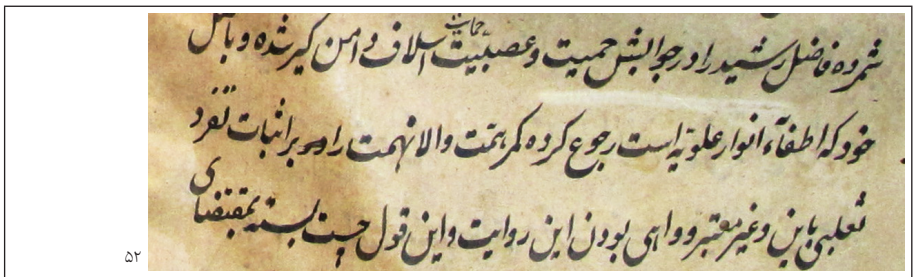 حمایت
شمرده فاضل رشید را در جوابش حمیت و عصبیت اسلاف دامن گیر شده و باصل
خود که اطفآء انوار علویه است رجوع کرده کمر همت والا نهمت را بر اثبات تفرد
ثعلبی باین و غیر معتبر و واهی بودن این روایت و این قول چست بسته بمقتضای
۵۲